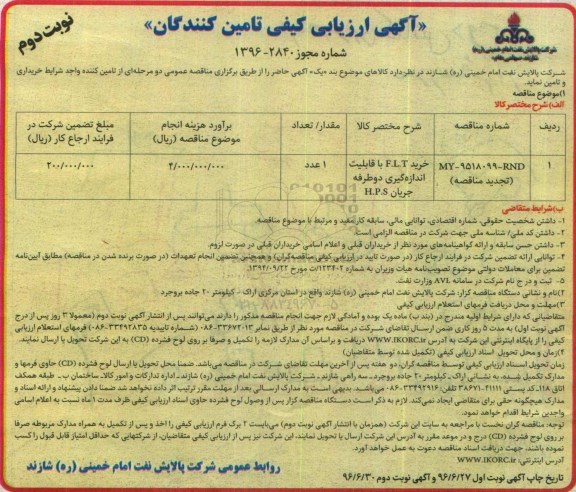 «آگهی ارزیابی کیفی تامین کنندگان»
نوبت دوم
شماره مجوز ۲۸۴۰-۱۳۹۶
شرکت پالایش نفت امام خمینی (ره)
شازند، سهامی عام
شرکت پالایش نفت امام خمینی (ره) شازند در نظر دارد کالاهای موضوع بند «یک» آگهی حاضر را از طریق برگزاری مناقصه عمومی دو مرحله‌ای از تامین کننده واجد شرایط خریداری و تامین نماید.
۱)موضوع مناقصه
الف)شرح مختصر کالا
ردیف شماره مناقصه شرح مختصر کالا مقدار/ تعداد برآورد هزینه انجام موضوع مناقصه (ریال) مبلغ تضمین شرکت در فرایند ارجاع کار (ریال)
۱ MY-۹۵۱۸۰۹۹-RND (تجدید مناقصه) خرید F.L.T با قابلیت اندازه‌گیری دوطرفه جریان H.P.S ۱ عدد ۴/۰۰۰/۰۰۰/۰۰۰ ۲۰۰/۰۰۰/۰۰۰
ب)شرایط متقاضی
۱- داشتن شخصیت حقوقی، شماره اقتصادی، توانایی مالی، سابقه کار مفید و مرتبط با موضوع مناقصه.
۲- داشتن کد ملی/ شناسه ملی جهت شرکت در مناقصه الزامی است.
۳- داشتن حسن سابقه و ارائه گواهینامه‌های مورد نظر از خریداران قبلی و اعلام اسامی خریداران قبلی در صورت لزوم.
۴- توانایی ارائه تضمین شرکت در فرایند ارجاع کار (در صورت تایید در ارزیابی کیفی مناقصه‌گران) و همچنین تضمین انجام تعهدات (در صورت برنده شدن در مناقصه) مطابق آیین‌نامه
تضمین برای معاملات دولتی موضوع تصویب‌نامه هیات وزیران به شماره ۱۲۳۴۰۲/ت مورخ ۱۳۹۴/۰۹/۲۲.
۵- ثبت و درج نام شرکت در سامانه AVL وزارت نفت.
۲)نام و نشانی دستگاه مناقصه گزار: شرکت پالایش نفت امام خمینی (ره) شازند واقع در استان مرکزی اراک - کیلومتر ۲۰ جاده بروجرد
۳)مهلت و محل دریافت فرمهای استعلام ارزیابی کیفی
متقاضیانی که دارای شرایط اولیه مندرج در (بند ب) ماده یک بوده و آمادگی لازم جهت انجام موضوع مناقصه مذکور را دارند می‌توانند پس از انتشار آگهی نوبت دوم (معمولا ۳ روز پس از درج
آگهی نوبت اول) به مدت ۵ روز کاری ضمن ارسال تقاضای شرکت در مناقصه مورد نظر از طریق نمابر ۳۳۶۷۲۰۱۳-۰۸۶ (شماره تاییدیه ۳۳۴۹۲۸۳۵-۰۸۶) فرمهای استعلام ارزیابی
کیفی را از پایگاه اینترنتی این شرکت به آدرس WWW.IKORC.ir دریافت و براساس آن مدارک لازمه را تکمیل و صرفا بر روی لوح فشرده (CD) به این شرکت تحویل یا ارسال نمایند.
۴)زمان و محل تحویل اسناد ارزیابی کیفی (تکمیل شده توسط متقاضیان)
زمان تحویل اسناد ارزیابی کیفی توسط مناقصه گران، دو هفته پس از آخرین مهلت تقاضای شرکت در مناقصه می‌باشد. ضمنا محل تحویل یا ارسال لوح فشرده (CD) حاوی فرمها و
مدارک تکمیل شده به نشانی اراک ـ کیلومتر ۲۰ جاده بروجرد ـ سه راهی شازند ـ شرکت پالایش نفت امام خمینی (ره) شازند ـ اداره تدارکات و امور کالا، ساختمان ب، طبقه همکف
اتاق ۱۱۸، کد پستی ۴۱۱۱۱-۳۸۶۷۱ تلفن: ۳۳۴۹۲۹۱۶-۰۸۶ می‌باشد. بدیهی است به مدارک ارسالی بعد از مهلت مقرر ترتیب اثر داده نخواهد شد ضمنا دادن پیشنهاد و ارائه اسناد و
مدارک هیچگونه حقی برای متقاضی ایجاد نمی‌کند. لازم به ذکر است دستگاه مناقصه گزار پس از وصول لوح فشرده حاوی اسناد ارزیابی کیفی ظرف مدت ۱ ماه نسبت به اعلام اسامی
واجدین شرایط اقدام خواهد نمود.
توجه: مناقصه گران نخست با مراجعه به سایت این شرکت (همزمان با انتشار آگهی نوبت دوم) می‌بایست ۲ برگ فرم ارزیابی کیفی را اخذ و پس از تکمیل به همراه مدارک مربوطه صرفا
بر روی لوح فشرده (CD) درج و در موعد مقرر به آدرس این شرکت ارسال یا تحویل نمایند. این شرکت نیز پس از ارزیابی کیفی متقاضیان، از شرکتهایی که حداقل امتیاز قابل قبول را کسب
نموده باشند، جهت دریافت اسناد مناقصه دعوت به عمل خواهد آورد.
آدرس اینترنتی: WWW.IKORC.ir
تاریخ چاپ آگهی نوبت اول ۹۶/۶/۲۷ و آگهی نوبت دوم ۹۶/۶/۳۰
روابط عمومی شرکت پالایش نفت امام خمینی (ره) شازند